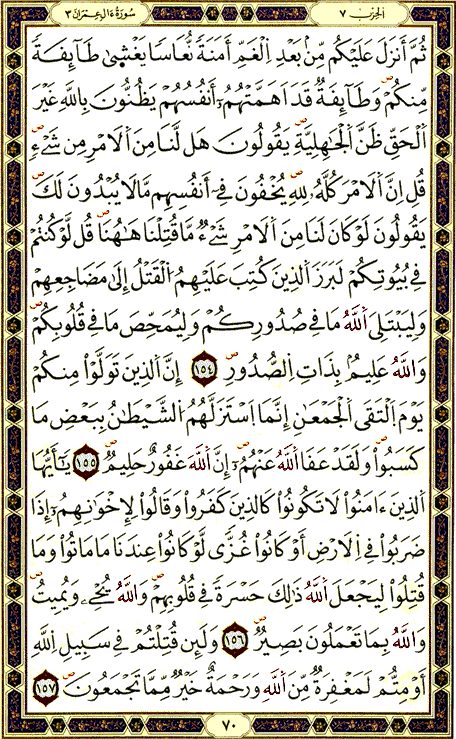 الحزب ٧
سُورَةُ ءَالِ عِمْرَانَ ٣
ثُمَّ أَنزَلَ عَلَيْكُم مِّنۢ بَعْدِ اِ۬لْغَمِّ أَمَنَةٗ نُّعَاسٗا يَغْش۪ىٰ طَآئِفَةٗ
مِّنكُمْۖ وَطَآئِفَةٞ قَدَ اَهَمَّتْهُمُۥٓ أَنفُسُهُمْ يَظُنُّونَ بِاللَّهِ غَيْرَ
اَ۬لْحَقِّ ظَنَّ اَ۬لْجَٰهِلِيَّةِۖ يَقُولُونَ هَل لَّنَا مِنَ اَ۬لَامْرِ مِن شَےْءٖۖ
قُلِ اِنَّ اَ۬لَامْرَ كُلَّهُۥ لِلهِۖ يُخْفُونَ فِےٓ أَنفُسِهِم مَّا لَا يُبْدُونَ لَكَۖ
يَقُولُونَ لَوْ كَانَ لَنَا مِنَ اَ۬لَامْرِ شَےْءٞ مَّا قُتِلْنَا هَٰهُنَاۖ قُل لَّوْ كُنتُمْ
فِے بُيُوتِكُمْ لَبَرَزَ اَ۬لذِينَ كُتِبَ عَلَيْهِمُ اُ۬لْقَتْلُ إِلَىٰ مَضَاجِعِهِمْۖ
وَلِيَبْتَلِيَ اَ۬للَّهُ مَا فِے صُدُورِكُمْ وَلِيُمَحِّصَ مَا فِے قُلُوبِكُمْۖ
وَاللَّهُ عَلِيمُۢ بِذَاتِ اِ۬لصُّدُورِۖ ١٥٤ إِنَّ اَ۬لذِينَ تَوَلَّوْاْ مِنكُمْ
يَوْمَ اَ۬لْتَقَى اَ۬لْجَمْعَٰنِ إِنَّمَا اَ۪سْتَزَلَّهُمُ اُ۬لشَّيْطَٰنُ بِبَعْضِ مَا
كَسَبُواْۖ وَلَقَدْ عَفَا اَ۬للَّهُ عَنْهُمُۥٓۖ إِنَّ اَ۬للَّهَ غَفُورٌ حَلِيمٞۖ ١٥٥ يَٰٓأَيُّهَا
اَ۬لذِينَ ءَامَنُواْ لَا تَكُونُواْ كَالذِينَ كَفَرُواْ وَقَالُواْ لِإِخْوَٰنِهِمُۥٓ إِذَا
ضَرَبُواْ فِے اِ۬لَارْضِ أَوْ كَانُواْ غُزّٗى لَّوْ كَانُواْ عِندَنَا مَا مَاتُواْ وَمَا
قُتِلُواْۖ لِيَجْعَلَ اَ۬للَّهُ ذَٰلِكَ حَسْرَةٗ فِے قُلُوبِهِمْۖ وَاللَّهُ يُحْيِۦ وَيُمِيتُۖ
وَاللَّهُ بِمَا تَعْمَلُونَ بَصِيرٞۖ ١٥٦ وَلَئِن قُتِلْتُمْ فِے سَبِيلِ اِ۬للَّهِ
أَوْ مِتُّمْ لَمَغْفِرَةٞ مِّنَ اَ۬للَّهِ وَرَحْمَةٌ خَيْرٞ مِّمَّا تَجْمَعُونَۖ ١٥٧
٧٠